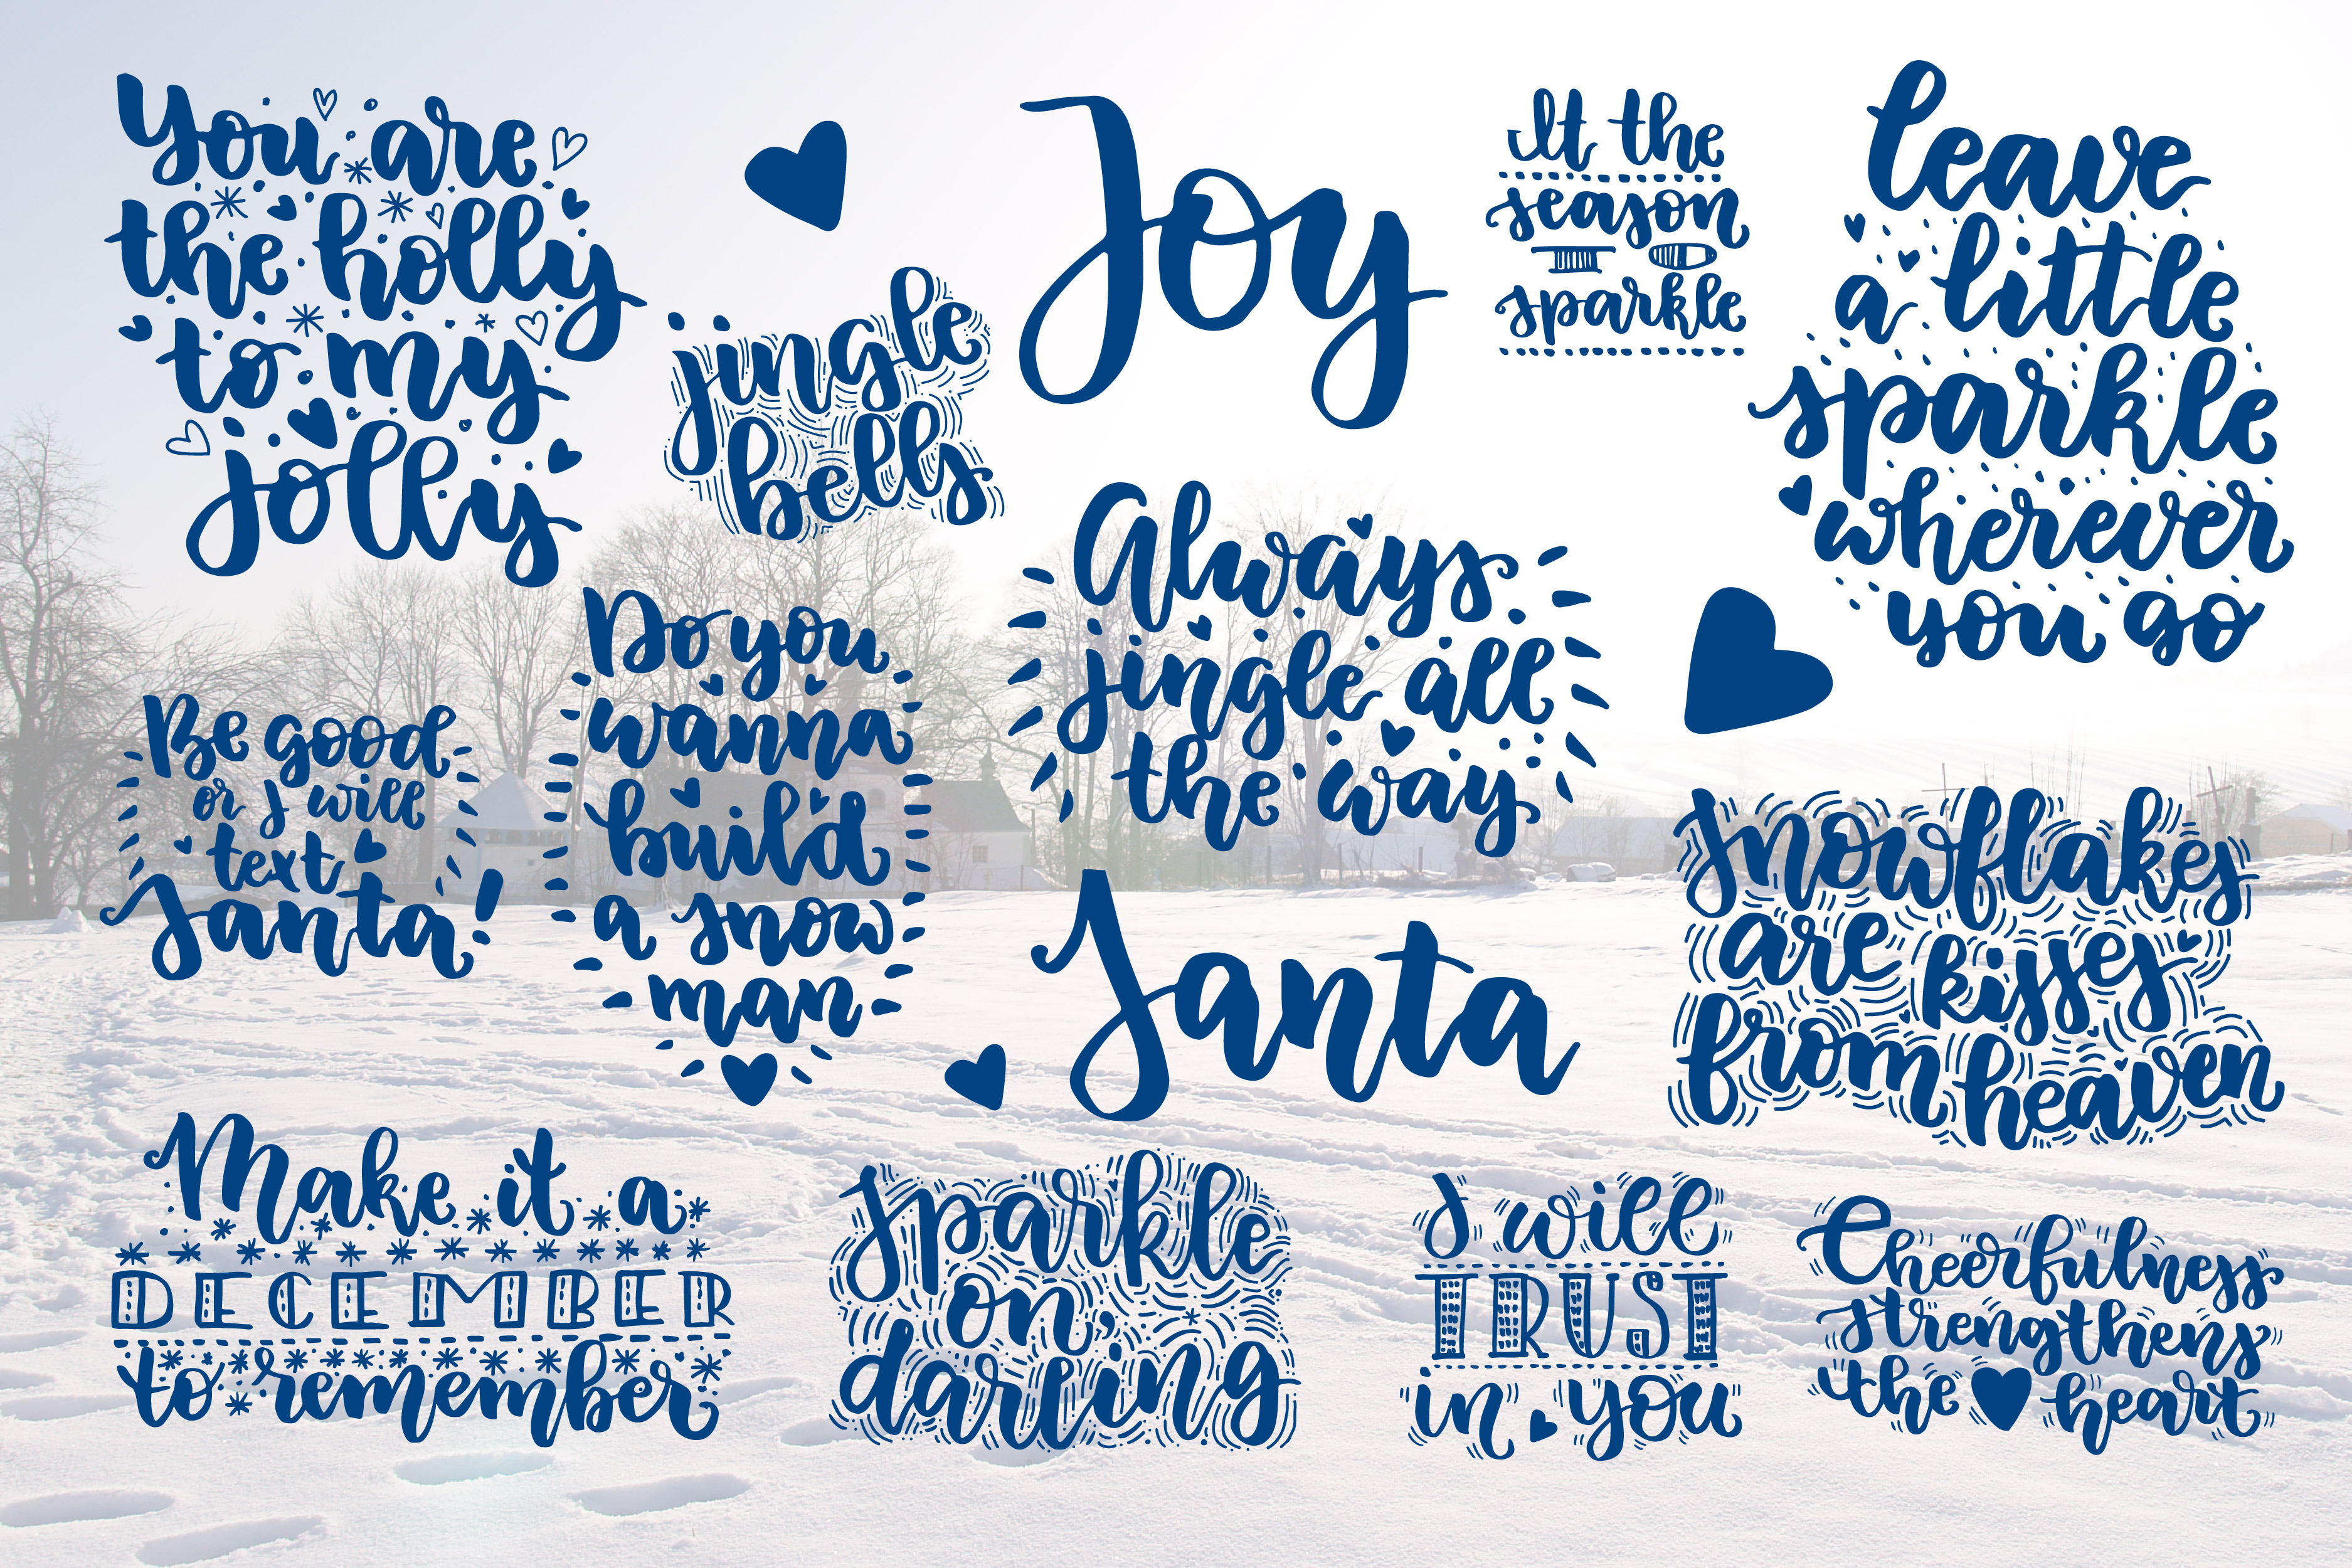 You are
the holly
to my
jolly
jingle
bells
Joy
It the
season
sparkle
leave
a little
sparkle
wherever
you go
Be good
or I will
text
Santa!
Do you
wanna
build
a snow
man
Always
jingle all
the way
Santa
Snowflakes
are kisses
from heaven
Make it a
DECEMBER
to remember
Sparkle
on,
darling
I will
TRUST
in you
Cheerfulness
strengthens
the heart